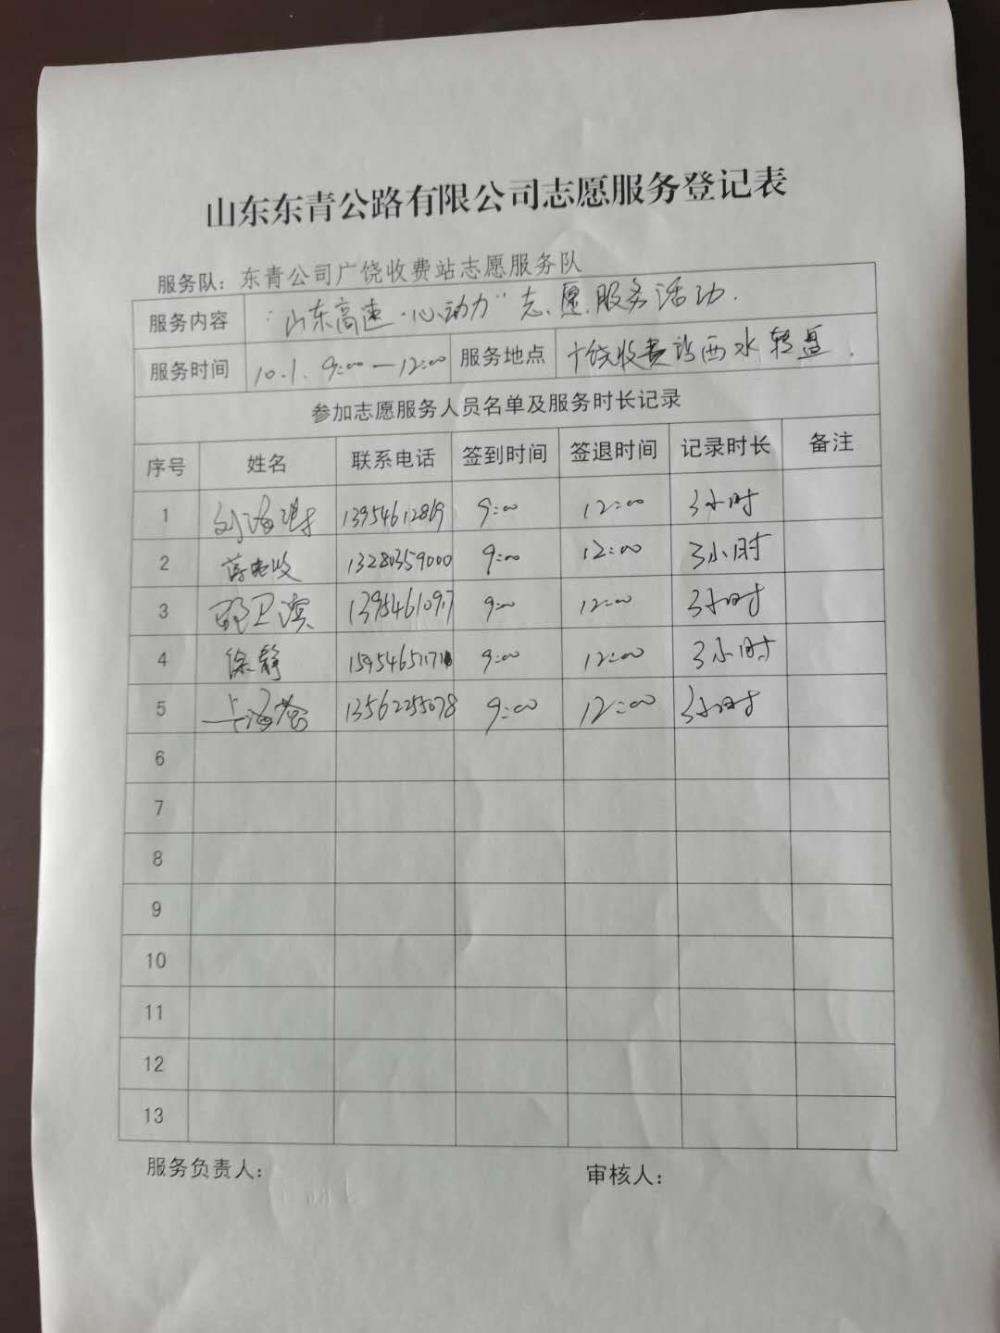 山东东青公路有限公司志愿服务登记表
服务队：东青公司广饶收费站志愿服务队
服务内容 “山东高速·心动力”志愿服务活动.
服务时间 10.1. 9:00—12:00 服务地点 广饶收费站西水转盘.
参加志愿服务人员名单及服务时长记录
序号 姓名 联系电话 签到时间 签退时间 记录时长 备注
1 9:00 12:00 3小时
2 13280359000 9:00 12:00 3小时
3 9:00 12:00 3小时
4 徐静 9:00 12:00 3小时
5 13562255078 9:00 12:00 3小时
6
7
8
9
10
11
12
13
服务负责人： 审核人：